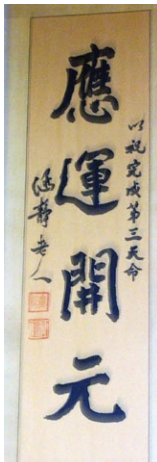 以祝完成第三天命
應運開元
涵靜老人